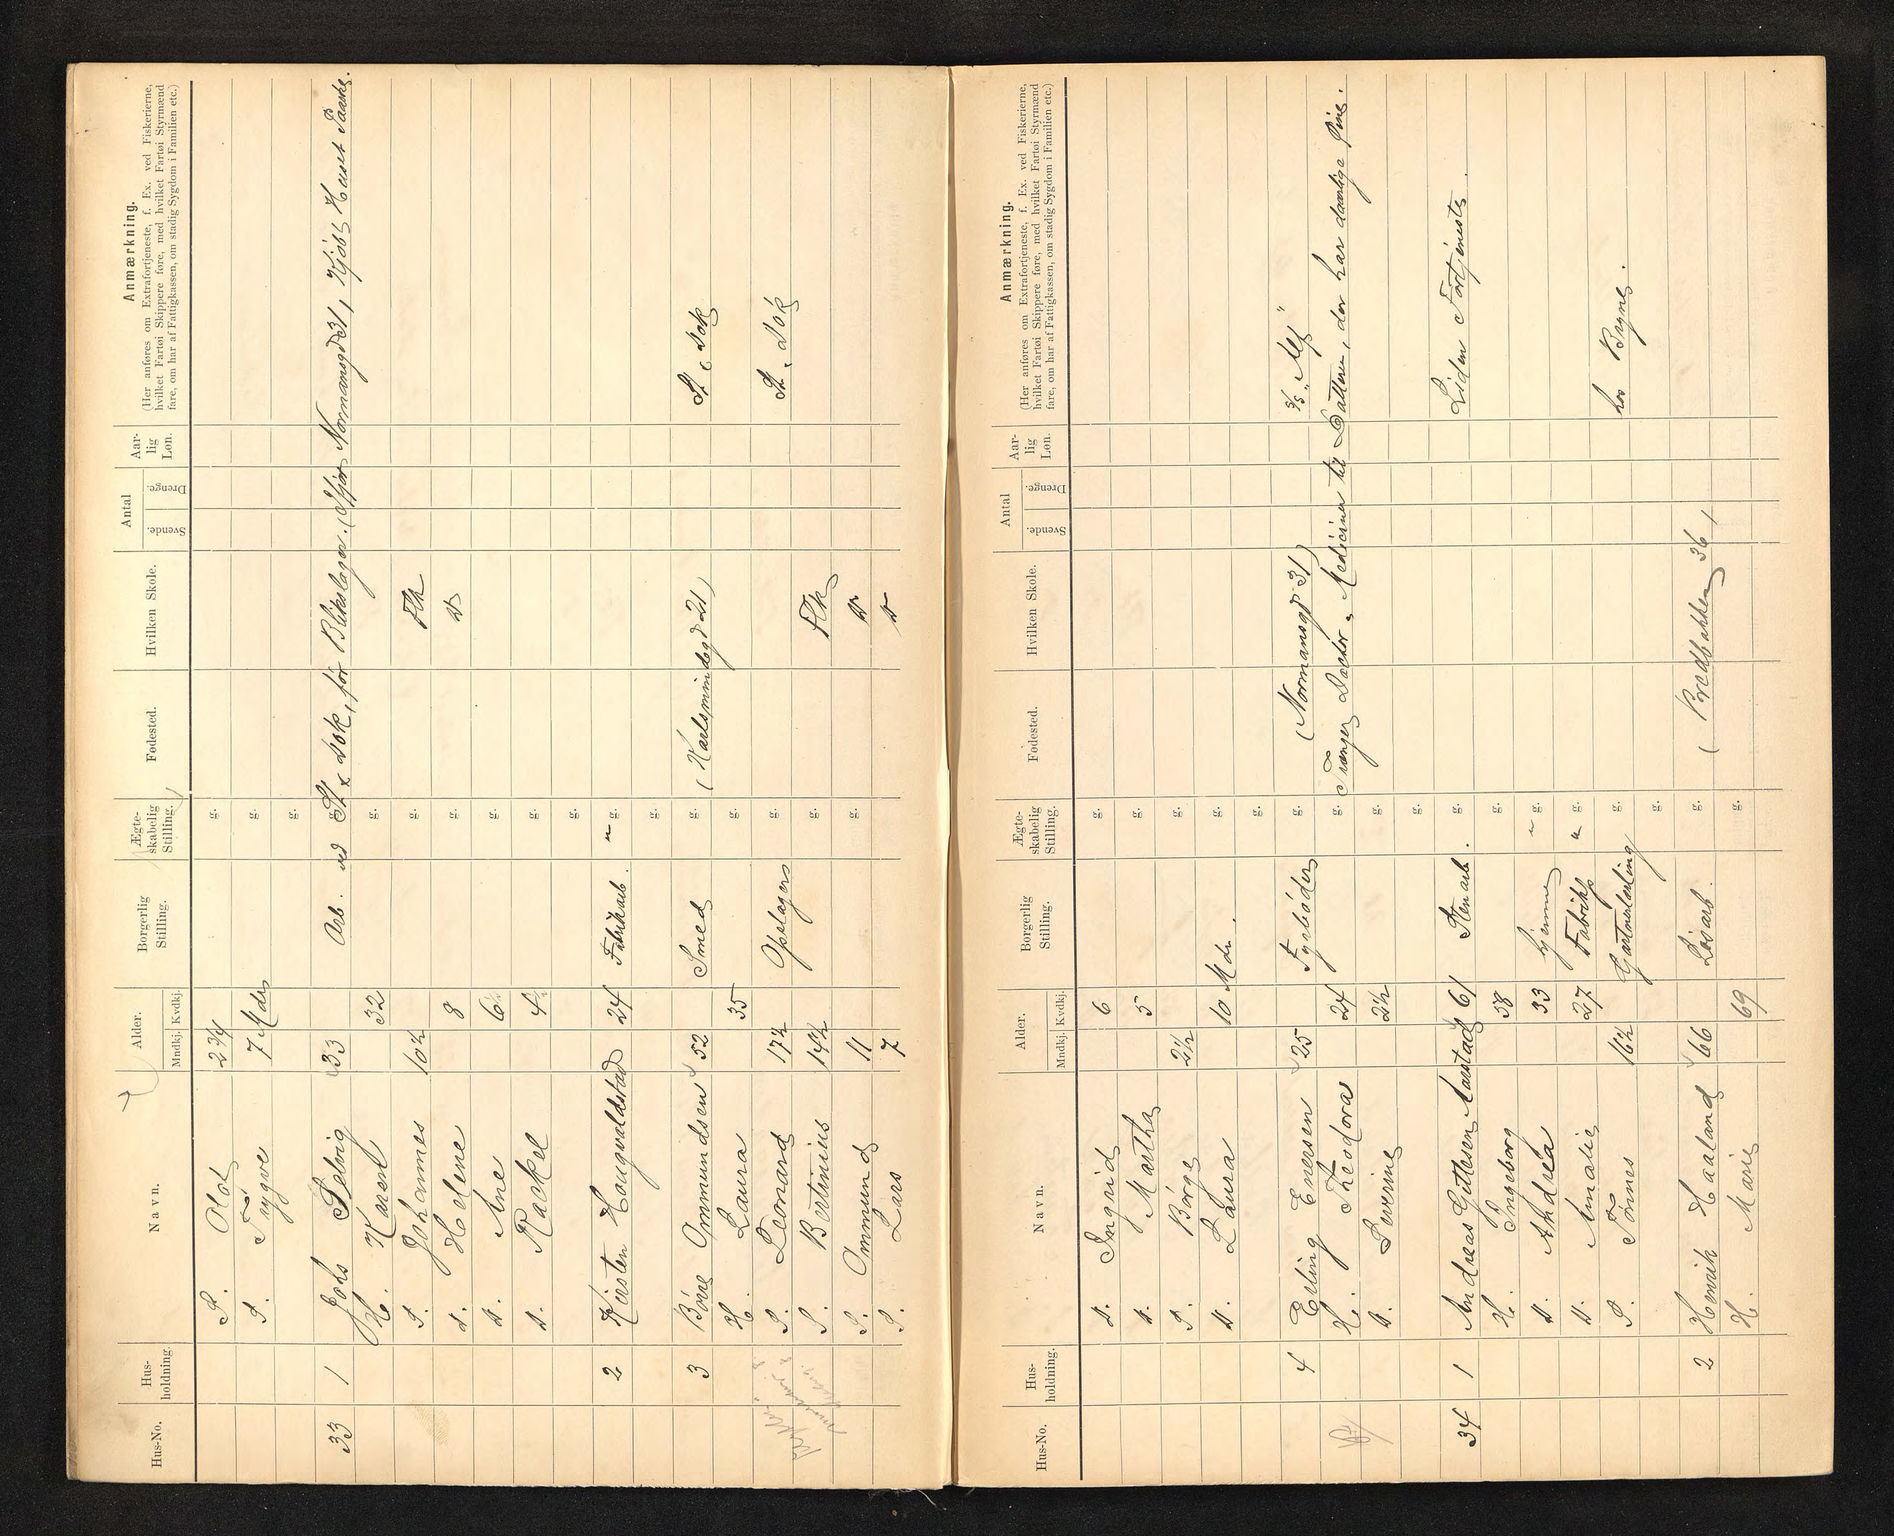 Hus-No. Hus-holdning. Navn. Alder. Mndkj. Kvdkj. Borgerlig Stilling. Ægte-skabelig Stilling. Fødested. Hvilken Skole. Antal Svende. Drenge. Aar-lig Løn. Anmærkning.
(Her anføres om Extrafortjeneste, f. Ex. ved Fiskerierne, hvilket Fartøi Skippere føre, med hvilket Fartøi Styrmænd fare, om har af Fattigkassen, om stadig Sygdom i Familien etc.)
S. Olof 2 3/4 g.
S. Trygve 7 Mdr g.
g.
33 1 Johs Selvig 33 Arb. ved St. Dok, før Blikslager. (Ifjor Normansgd 31, Kjøbt Huset Paaske.
H. Karen 32 g.
S. Johannes 10½ g. Flk
D. Helene 8 g. D
D. Ane 6½ g.
D. Rackel 4½ g.
g.
2 Kirsten Hougvaldstad 24 Fabrikarb. " g.
g.
3 Børe Ommundsen 52 Smed g. (Karlsmindegd 21) St. Dok
H. Laura 35 g.
S. Leonard 17½ Opslager g. St. Dok
S. Bertinius 14½ g. Flk
S. Ommund 11 g. D
S. Lars 7 D
Hus-No. Hus-holdning. Navn. Alder. Mndkj. Kvdkj. Borgerlig Stilling. Ægte-skabelig Stilling. Fødested. Hvilken Skole. Antal Svende. Drenge. Aar-lig Løn. Anmærkning.
(Her anføres om Extrafortjeneste, f. Ex. ved Fiskerierne, hvilket Fartøi Skippere føre, med hvilket Fartøi Styrmænd fare, om har af Fattigkassen, om stadig Sygdom i Familien etc.)
D. Ingrid 6 g.
D. Martha 5 g.
S. Børge 2½ g.
D. Laura 10 Mdr. g.
g.
4 Erling Enersen 25 Fyrbøder g. (Normansgd 31)
H. Theodora 24 g. Trænger Doctor & Medeciner til Datteren, der har daarlige Øine.
D. Severine 2½ g.
g.
34 1 Andreas Gitlesen Aarstad 61 Stenarb. g. Liden Fortjeneste.
H. Ingeborg 58 g.
D. Andrea 33 hjemme " g.
D. Amalie 27 Fabrikp " g.
S. Tønnes 16½ Gartnerlærling g. hos Bryne.
g.
2 Henrik Haaland 66 Løsarb. g. (Bredbakken 36)
H. Marie 69 g.